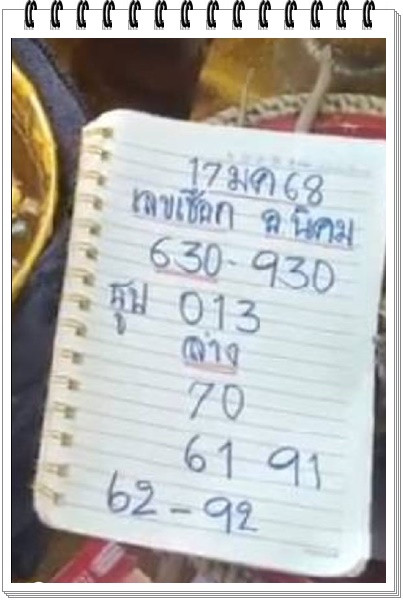 17 มค 68
เลขเชือก อ.นิคม
630-930
ธูป 013
ล่าง
70
61 91
62-92